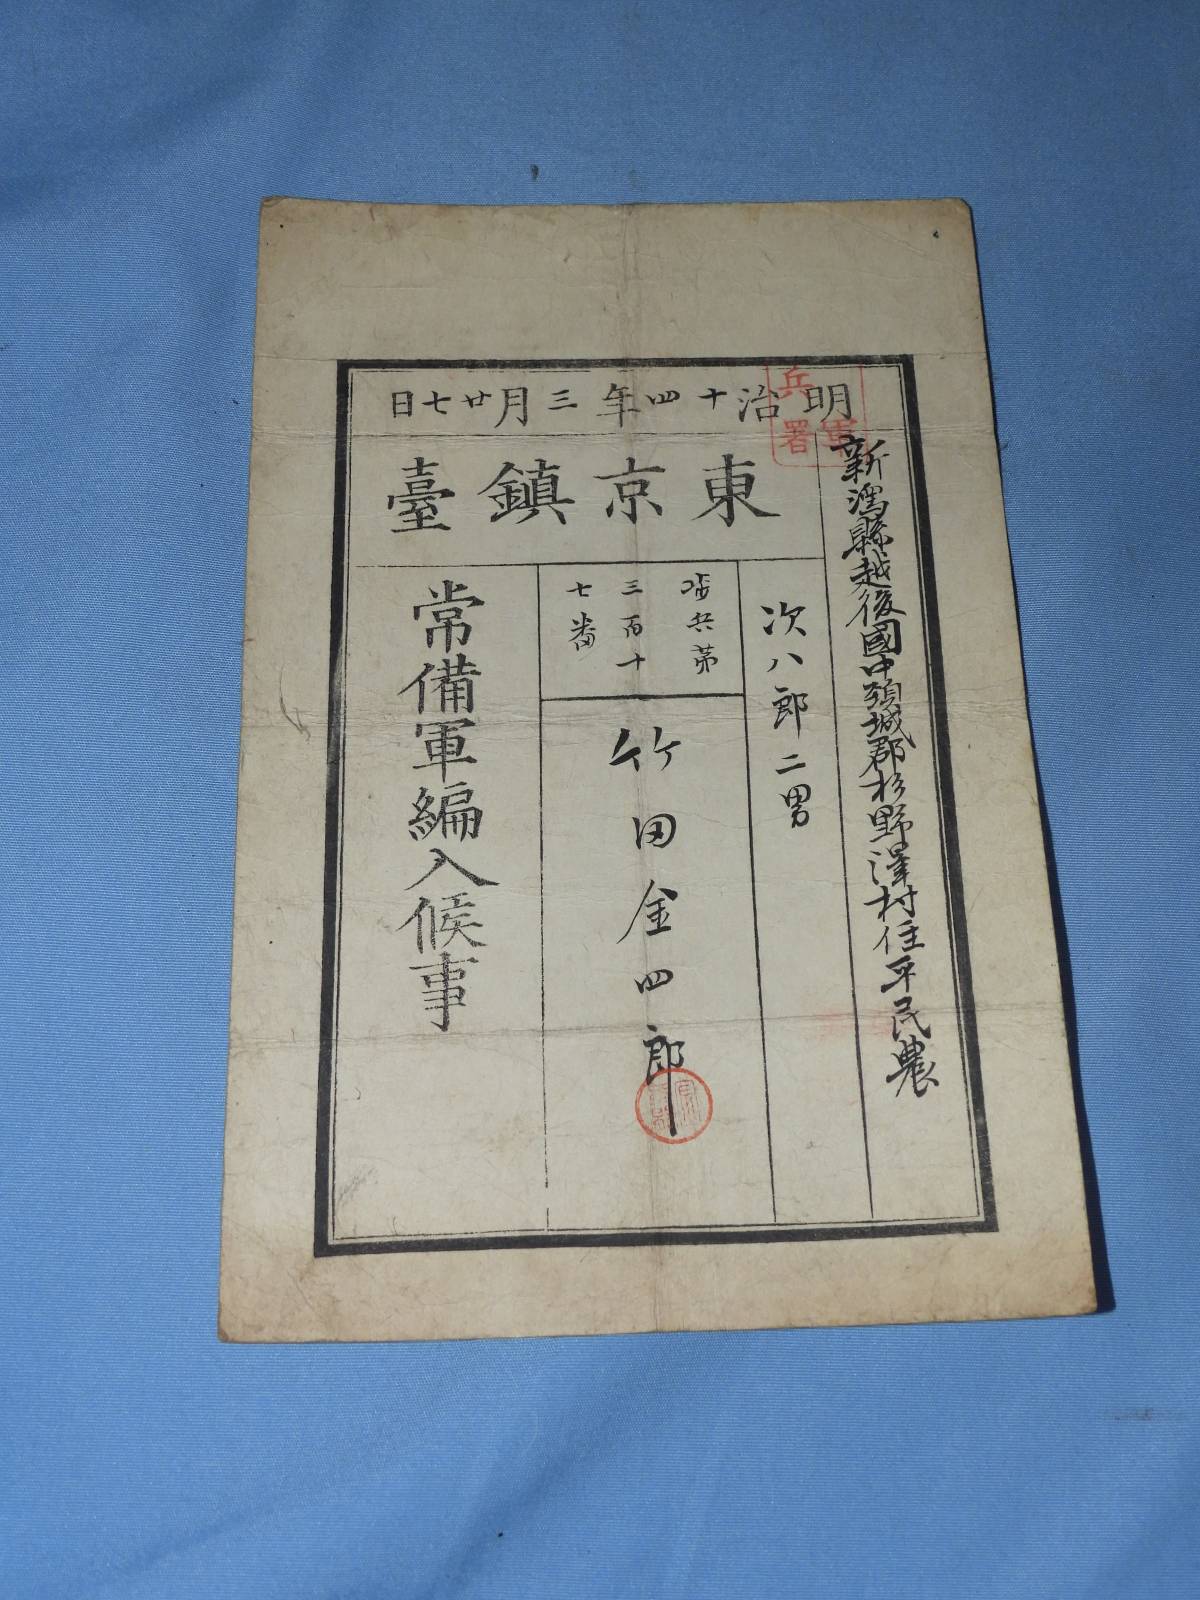 新潟縣越後國中頸城郡杉野澤村住平民農
次八郎二男
歩兵第
三百十
七番
竹田金四郎
常備軍編入候事
東京鎮臺
明治十四年三月廿七日